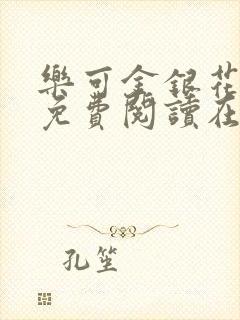 樂可金銀花
免費閱讀在
孔笙